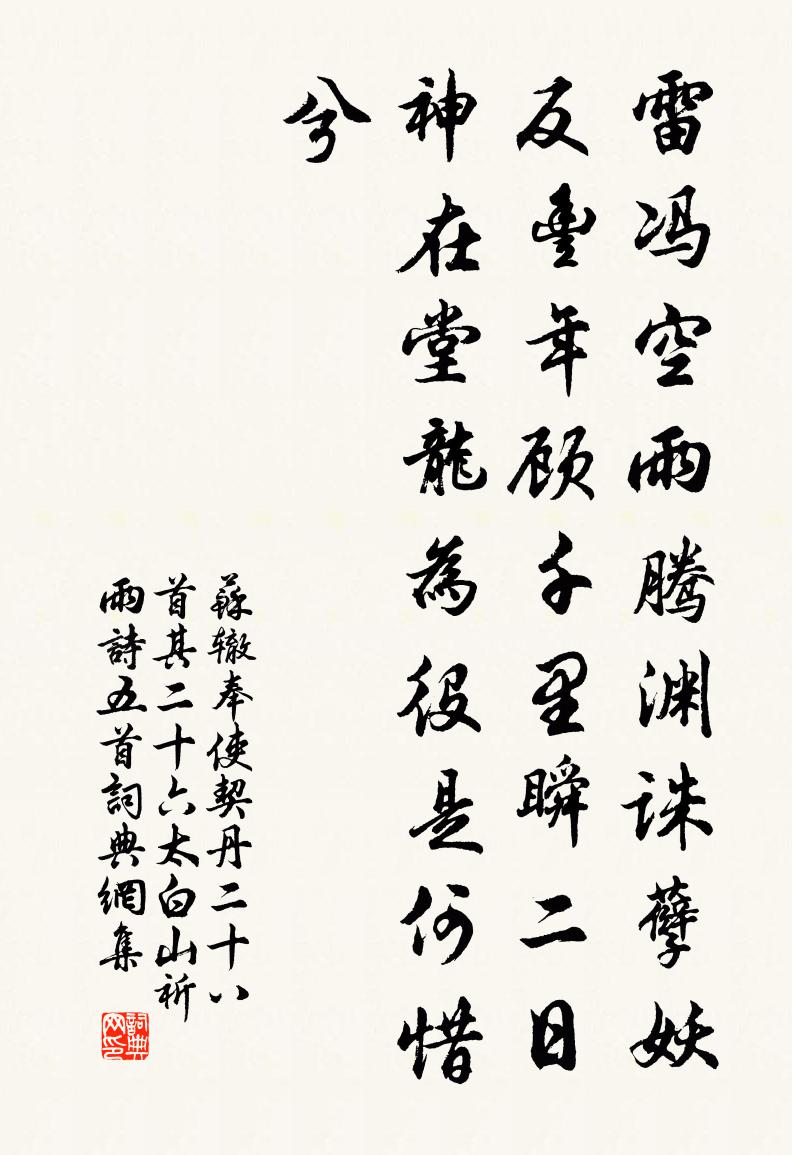 雷冯空雨腾渊诛孽妖
反豐年顾千里瞬二日
神在堂龍為役是何惜
兮
蘇辙奉使契丹二十八
首其二十六太白山祈
雨詩五首詞典網集
詞典网印